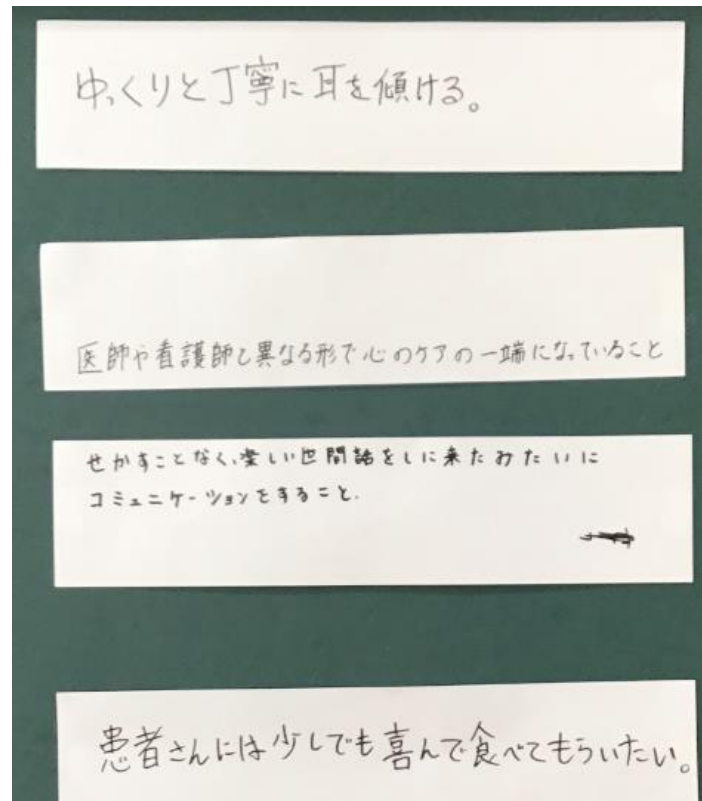 ゆっくりと丁寧に耳を傾ける。
医師や看護師と異なる形で心のケアの一端になっていること
せかすことなく、楽しい世間話をしに来たみたいに
コミュニケーションをすること.
患者さんには少しでも喜んで食べてもらいたい。